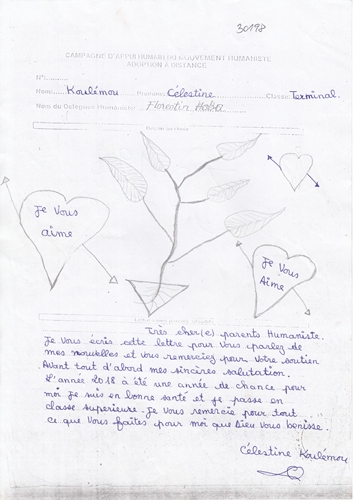 30198
CAMPAGNE D'APPUI HUMAIN DU MOUVEMENT HUMANISTE
ADOPTION A DISTANCE
N°:
Nom: Koulémou Prénoms: Célestine Classe: Terminal.
Nom du Délégué Humaniste: Florentin Haba
Je Vous
aime
Je Vous
Aime
Très cher(e) parents Humaniste.
Je Vous écris cette lettre pour Vous parlez de
mes nouvelles et vous remerciez pour Votre soutien
Avant tout d'abord mes sincères salutation.
L'année 2018 à été une année de chance pour
moi Je suis en bonne santé et je passe en
classe superieure. Je Vous remercie pour tout
ce que Vous faites pour moi que Dieu Vous benisse.
Célestine Koulémou